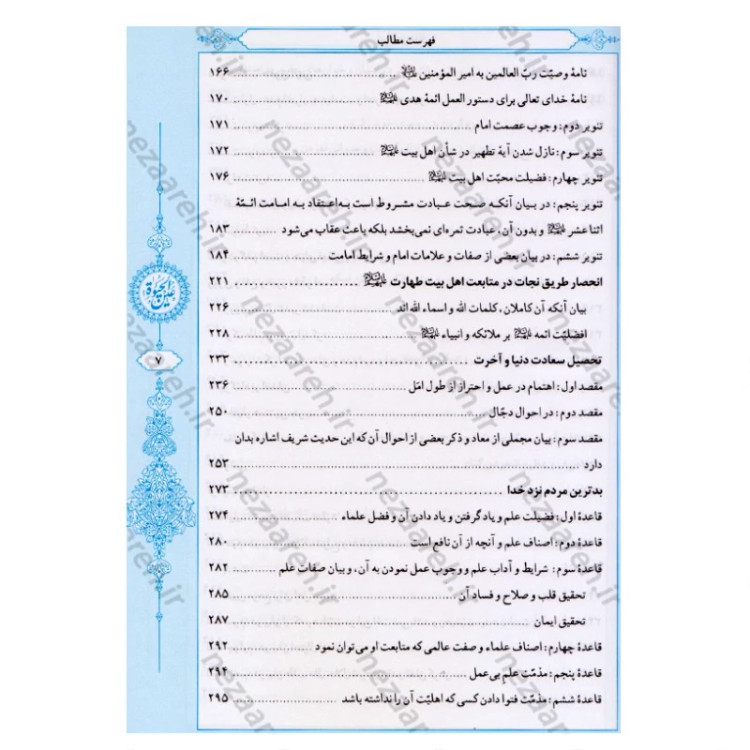 فهرست مطالب
نامهٔ وصیّت ربّ العالمین به امیر المؤمنین ﷺ ........ ۱۶۶
نامهٔ خدای تعالی برای دستور العمل ائمهٔ هدی ........ ۱۷۰
تنویر دوم: وجوب عصمت امام ........ ۱۷۱
تنویر سوم: نازل شدن آیهٔ تطهیر در شأن اهل بیت ........ ۱۷۲
تنویر چهارم: فضیلت محبّت اهل بیت ........ ۱۷۶
تنویر پنجم: در بیان آنکه صحت عبادت مشروط است به اعتقاد به امامت ائمّهٔ
اثنا عشر و بدون آن، عبادت ثمره‌ای نمی‌بخشد بلکه باعث عقاب می‌شود ........ ۱۸۳
تنویر ششم: در بیان بعضی از صفات و علامات امام و شرایط امامت ........ ۱۸۴
انحصار طریق نجات در متابعت اهل بیت طهارت ........ ۲۲۱
بیان آنکه آن کاملان، کلمات الله و اسماء الله اند ........ ۲۲۶
افضلیّت ائمه بر ملائکه و انبیاء ........ ۲۲۸
تحصیل سعادت دنیا و آخرت ........ ۲۳۳
مقصد اول: اهتمام در عمل و احتراز از طول امَل ........ ۲۳۶
مقصد دوم: در احوال دجّال ........ ۲۵۰
مقصد سوم: بیان مجملی از معاد و ذکر بعضی از احوال آن که این حدیث شریف اشاره بدان
دارد ........ ۲۵۳
بدترین مردم نزد خدا ........ ۲۷۳
قاعدهٔ اول: فضیلت علم و یاد گرفتن و یاد دادن آن و فضل علماء ........ ۲۷۴
قاعدهٔ دوم: اصناف علم و آنچه از آن نافع است ........ ۲۸۰
قاعدهٔ سوم: شرایط و آداب علم و وجوب عمل نمودن به آن، و بیان صفات علم ........ ۲۸۲
تحقیق قلب و صلاح و فساد آن ........ ۲۸۵
تحقیق ایمان ........ ۲۸۷
قاعدهٔ چهارم: اصناف علماء و صفت عالمی که متابعت او می‌توان نمود ........ ۲۹۲
قاعدهٔ پنجم: مذمّت علم بی‌عمل ........ ۲۹۴
قاعدهٔ ششم: مذمّت فتوا دادن کسی که اهلیّت آن را نداشته باشد ........ ۲۹۵
عین الحیوة
۷
nezaareh.ir